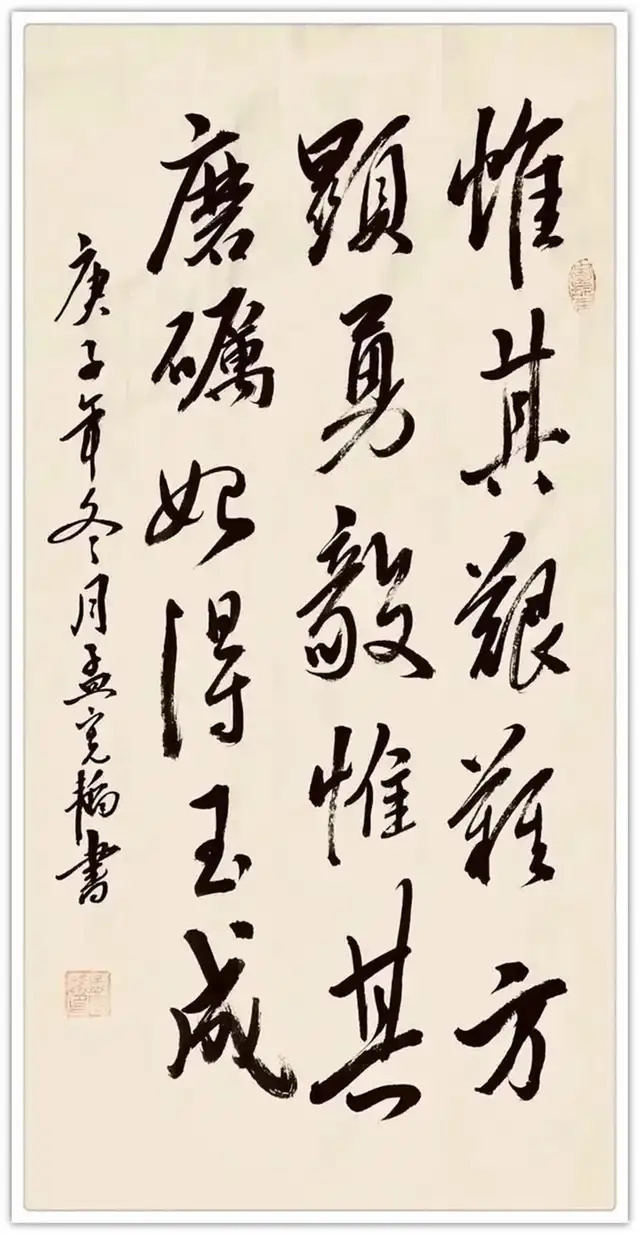 惟其艱難方
顯勇毅惟其
磨礪始得玉成
庚子年冬月孟書